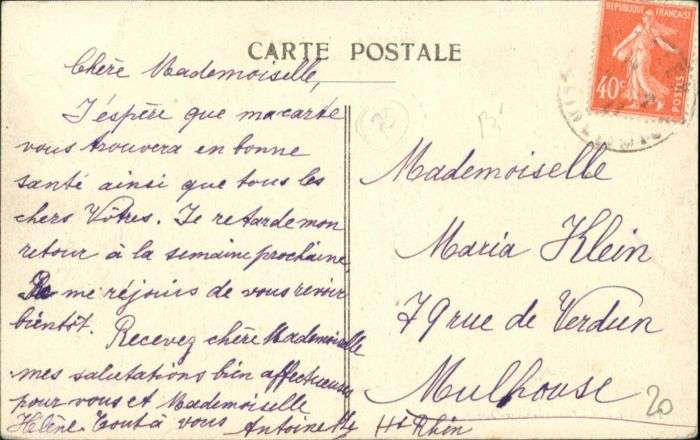 CARTE POSTALE
Chère Mademoiselle,
J'espère que ma carte
vous trouvera en bonne
santé ainsi que tous les
chers Vôtres. Je retarde mon
retour à la semaine prochaine,
Je me réjouis de vous revoir
bientôt. Recevez chère Mademoiselle
mes salutations bien affectueuses
pour vous et Mademoiselle
Hélène. Tout à vous Antoinette
REPUBLIQUE FRANÇAISE
40c
POSTES
20
Mademoiselle
Maria Klein
79 rue de Verdun
Mulhouse
Ht Rhin
20